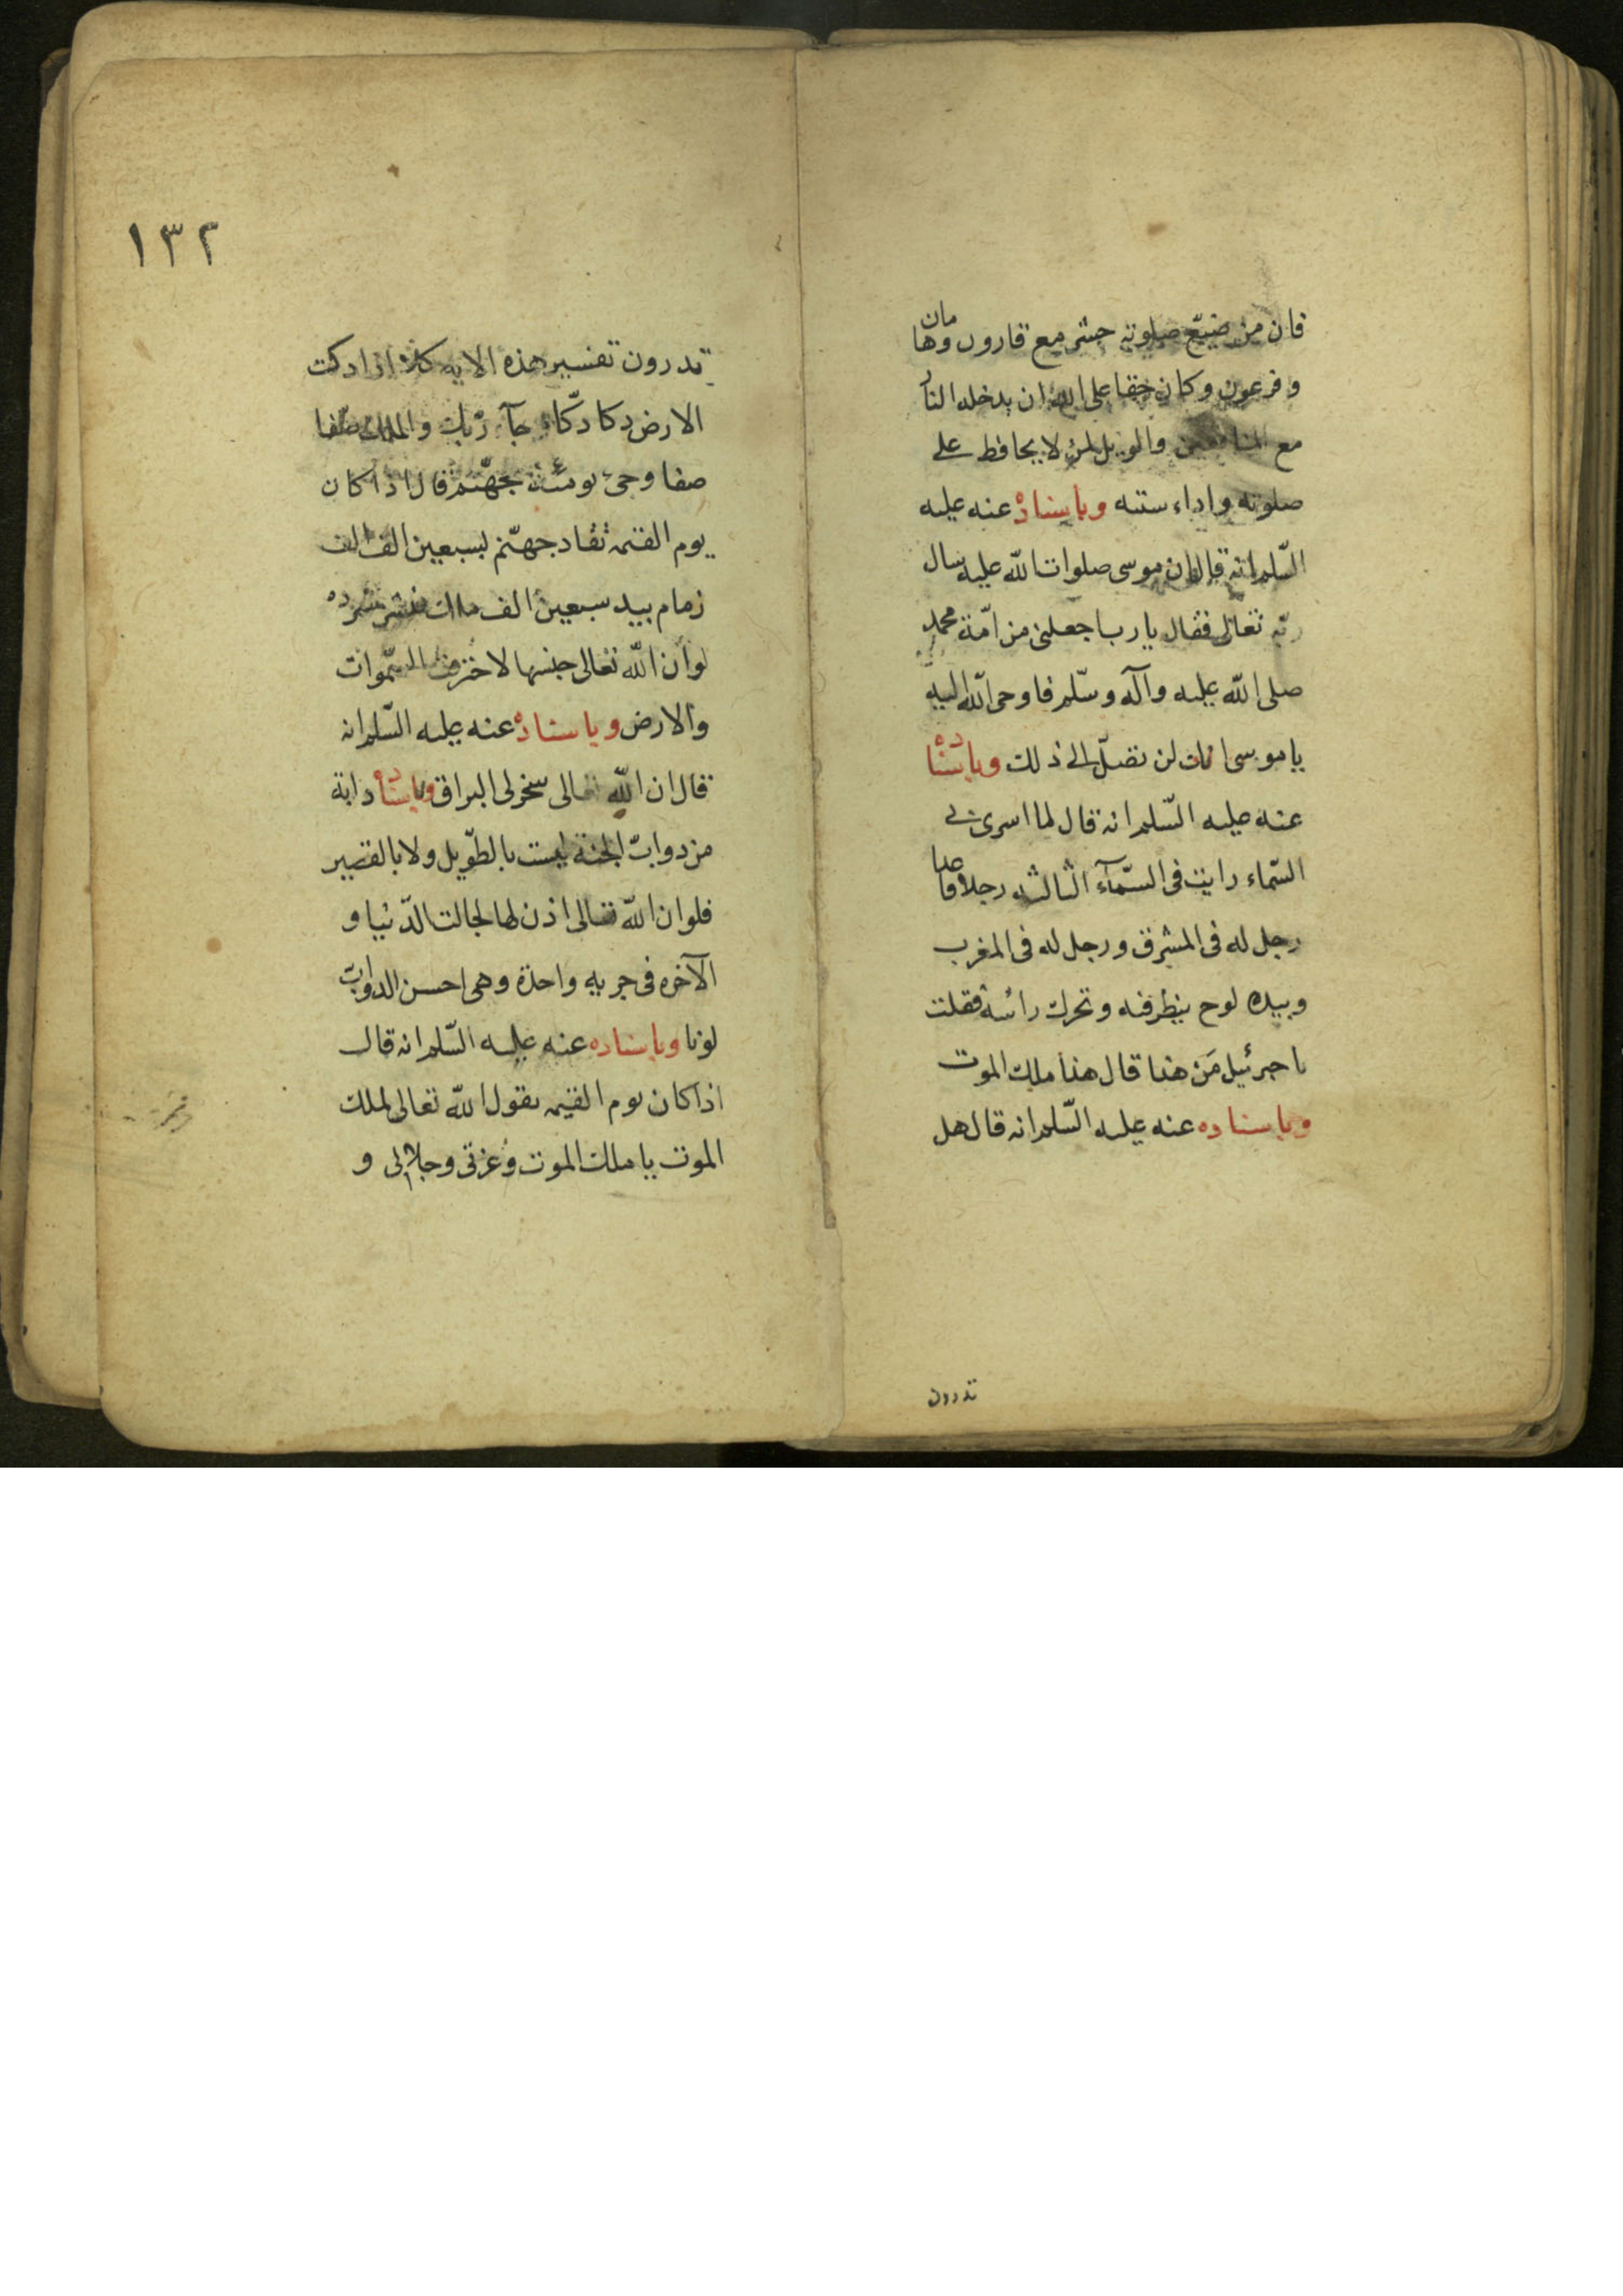 فان من ضيّع صلوته حشر مع قارون وهامان
و فرعون وكان حقا على الله ان يدخله النار
مع المنافقين والويل لمن لا يحافظ على
صلوته واداء سنته وباسناده عنه عليه
السّلم انه قال ان موسى صلوات الله عليه سال
ربّه تعالى فقال يا رب اجعلنى من امّة محمد
صلى الله عليه وآله وسّلم فاوحى الله اليه
يا موسى انك لن تصل الى ذلك وباسناده
عنه عليه السّلم انه قال لما اسرى بى
السّماء رايت فى السّمآء الثالثه رجلا قاعدا
رجل له فى المشرق ورجل له فى المغرب
وبيده لوح ينظر فيه وتحرك رائسه فقلت
يا جبرئيل مَن هذا قال هذا ملك الموت
وباسناده عنه عليه السّلم انه قال هل
تدرون
١٣٢
تدرون تفسير هذه الايه كلا اذا دكت
الارض دكا دكّا و جآء ربّك والملك صفّا
صفا وجىء يومئذ بجهنّم قال اذا كان
يوم القيمه تقاد جهنّم بسبعين الف الف
زمام بيد سبعين الف ملك فتشرد شرده
لو أن الله تعالى حبسها لاحترقت السّموات
والارض وباسناده عنه عليه السّلم انه
قال ان الله تعالى سخر لى البراق وباسناده دابة
من دوابّ الجنة ليست بالطّويل ولا بالقصير
فلو ان الله تعالى اذن لها لجالت الدّنيا و
الآخره فى جريه واحدة وهى احسن الدوابّ
لونا وباسناده عنه عليه السّلم انه قال
اذا كان يوم القيمه يقول الله تعالى لملك
الموت يا ملك الموت وعزتى وجلالى و